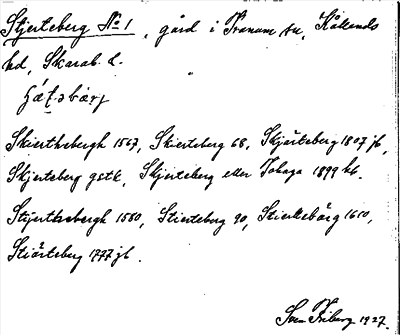 Stjerteberg No 1, gård i Tranum sn, Kållands
hd, Skarab. l.
Skierthebergh 1567, Skierteberg 68, Skjärteberg 1807 jb,
Skjerteberg gstk, Skjerteberg eller Tohaga 1899 kk.
Stijerthebergh 1580, Stierteberg 90, Stierkebärg 1610,
Stiärteberg 1777 jb.
Sven Friberg 1927.